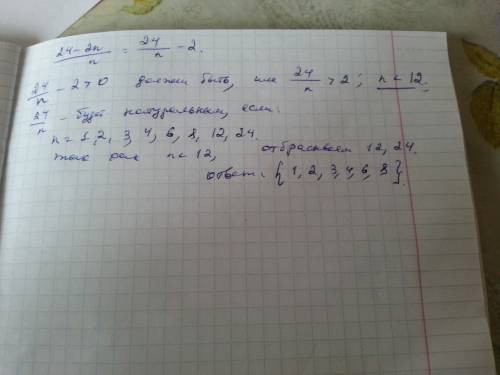 (24-2n)/n = 24/n - 2.
24/n - 2 > 0 должно быть, или 24/n > 2; n < 12.
24/n - будет натуральным, если:
n = 1, 2, 3, 4, 6, 8, 12, 24.
так как n < 12, отбрасываем 12, 24.
ответ: {1, 2, 3, 4, 6, 8}.